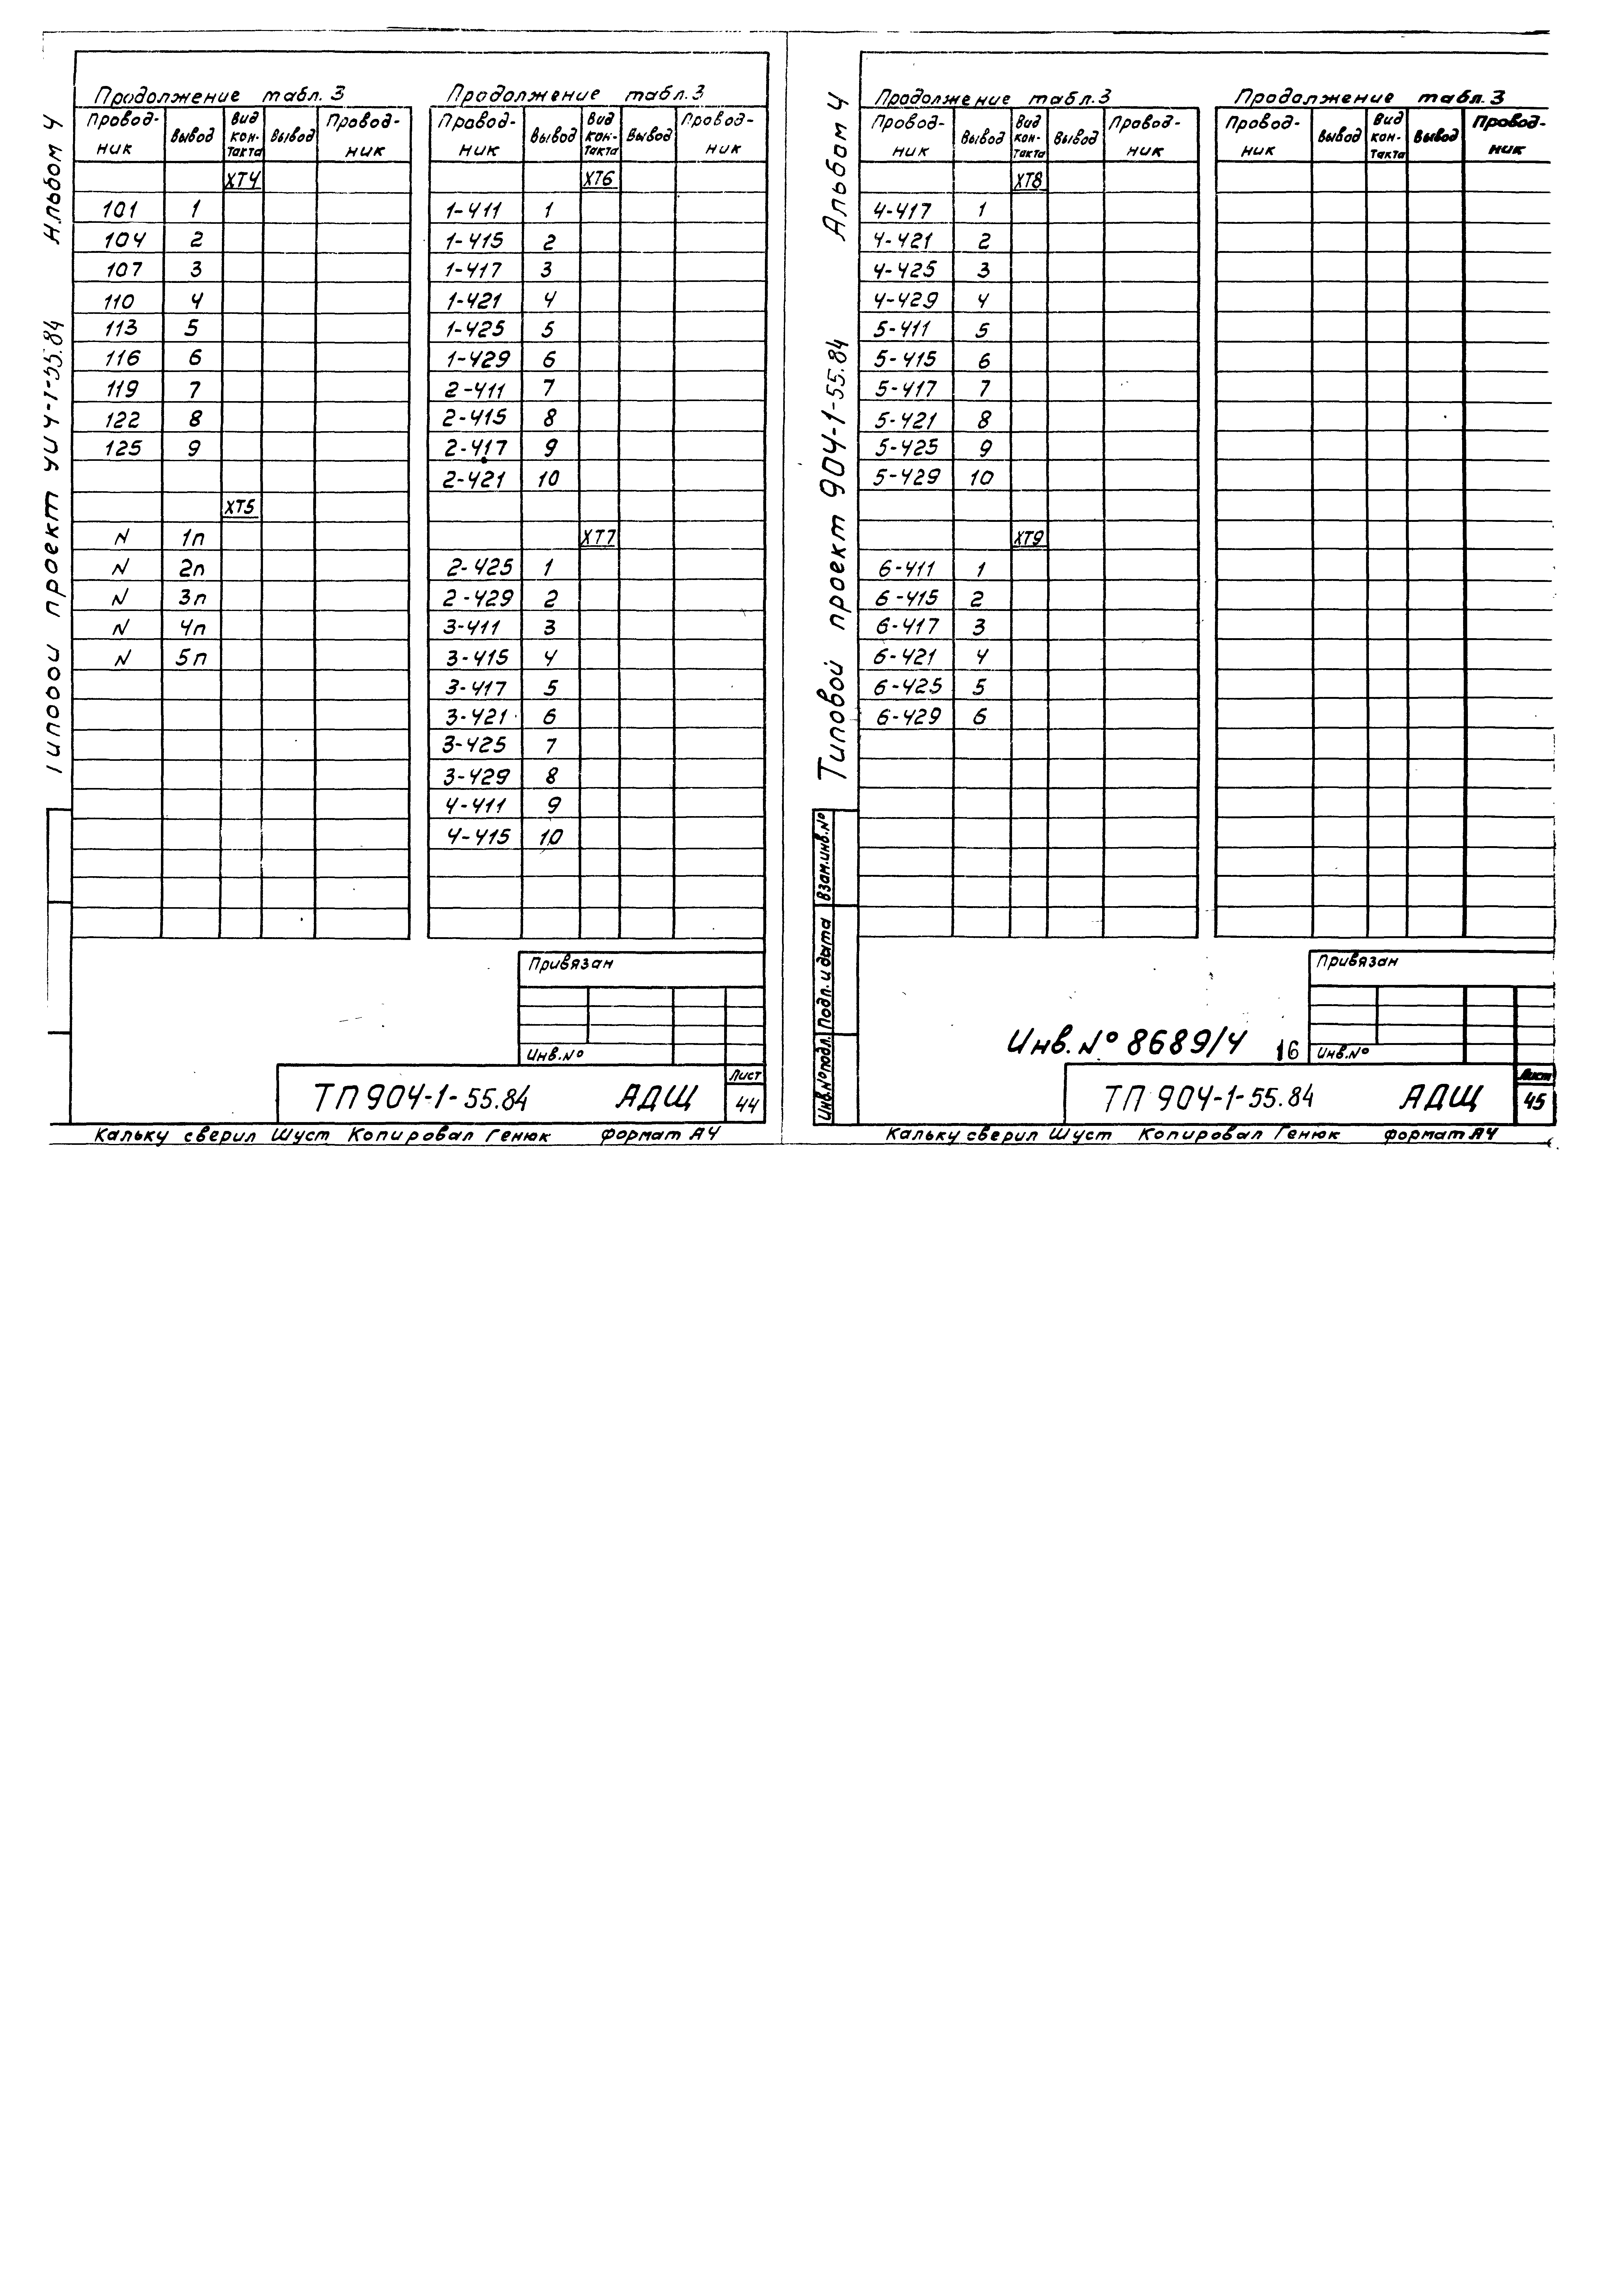 Альбом 4
Типовой проект 904-1-55.84
Продолжение табл. 3
Провод-ник Вывод Вид кон-такта Вывод Провод-ник
ХТ4
101 1
104 2
107 3
110 4
113 5
116 6
119 7
122 8
125 9
ХТ5
N 1п
N 2п
N 3п
N 4п
N 5п
Продолжение табл. 3
Провод-ник Вывод Вид кон-такта Вывод Провод-ник
ХТ6
1-411 1
1-415 2
1-417 3
1-421 4
1-425 5
1-429 6
2-411 7
2-415 8
2-417 9
2-421 10
ХТ7
2-425 1
2-429 2
3-411 3
3-415 4
3-417 5
3-421 6
3-425 7
3-429 8
4-411 9
4-415 10
Привязан
Инв.№
ТП 904-1-55.84 АДЩ
Лист
44
Кальку сверил Шуст Копировал Генюк формат А4
Альбом 4
Типовой проект 904-1-55.84
Продолжение табл.3
Провод-ник Вывод Вид кон-такта Вывод Провод-ник
ХТ8
4-417 1
4-421 2
4-425 3
4-429 4
5-411 5
5-415 6
5-417 7
5-421 8
5-425 9
5-429 10
ХТ9
6-411 1
6-415 2
6-417 3
6-421 4
6-425 5
6-429 6
Продолжение табл. 3
Провод-ник Вывод Вид кон-такта Вывод Провод-ник
Взам.инв.№
Подп. и дата
Инв.№ подл.
Привязан
Инв.№
Инв. № 8689/4 16
ТП 904-1-55.84 АДЩ
Лист
45
Кальку сверил Шуст Копировал Генюк формат А4